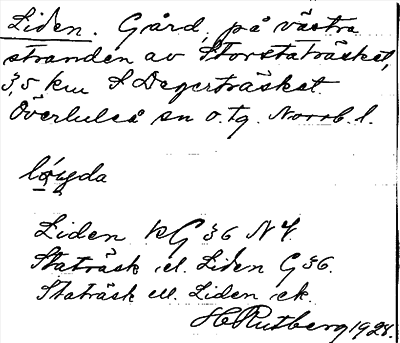 Liden. Gård, på västra
stranden av Storstaträsket,
3,5 km S Degerträsket.
Överluleå sn o. tg. Norrb. l.
Liden kG 36 NV.
Staträsk el. Liden G 36.
Staträsk ell. Liden ek.
H Rutberg 1928.